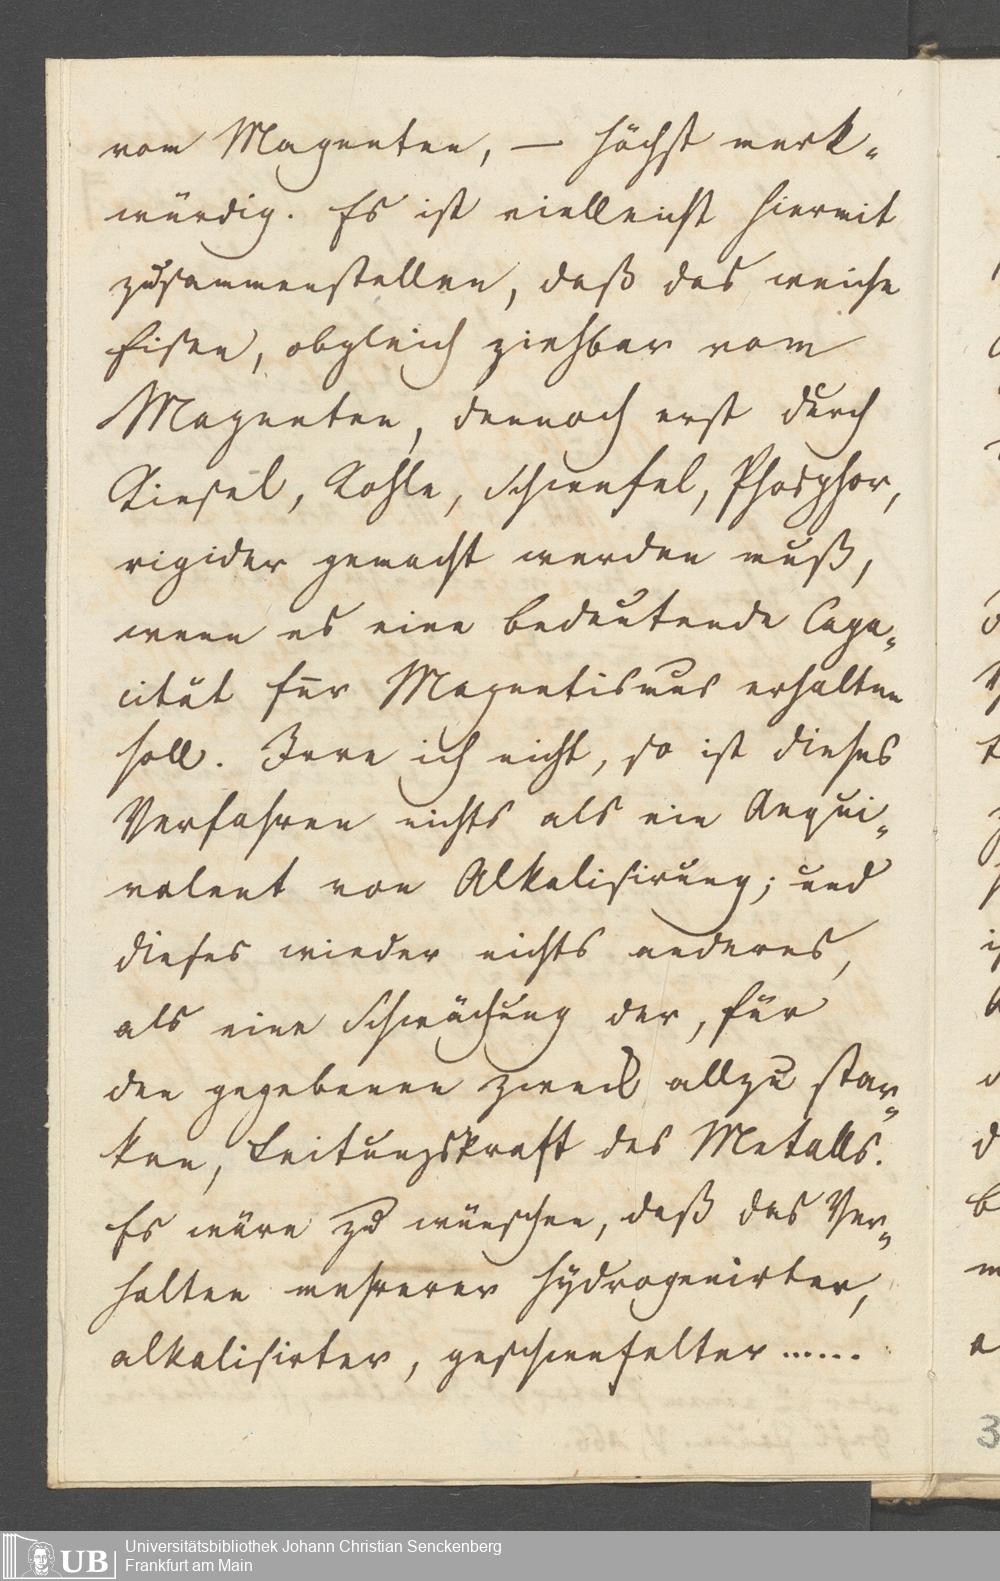 vom Magneten, — höchst merk-
würdig. Es ist vielleicht hiermit
zusammenstellen, daß das weiche
Eisen, obgleich ziehbar vom
Magneten, dennoch erst durch
Kiesel, Kohle, Schwefel, Phosphor,
rigider gemacht werden muß,
wenn es eine bedeutende Capa-
cität für Magnetismus erhalten
soll. Irre ich nicht, so ist dieses
Verfahren nichts als ein Aequi-
valent von Alkalisirung; und
dieses wieder nichts anderes,
als eine Schwächung der, für
den gegebenen Zweck allzu star-
ken, Leitungskraft des Metalls.
Es wäre zu wünschen, daß das Ver-
halten mehrerer hydrogenirter,
alkalisirter, geschwefelter ......
3
UB
Universitätsbibliothek Johann Christian Senckenberg
Frankfurt am Main